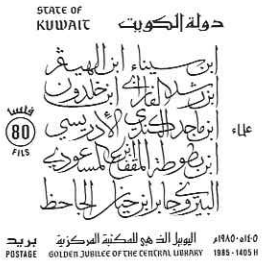 STATE OF
KUWAIT
دولة الكويت
ابن سيناء ابن الهيثم
ابن رشد الفارابي ابن خلدون
ابن ماجد الكندي الإدريسي
ابن بطوطة المقفع المسعودي
البيروني جابر ابن حيان الجاحظ
علماء
فلسا
80
FILS
بريد
POSTAGE
اليوبيل الذهبي للمكتبة المركزية
GOLDEN JUBILEE OF THE CENTRAL LIBRARY
١٤٠٥ھ ١٩٨٥م
1985 - 1405 H